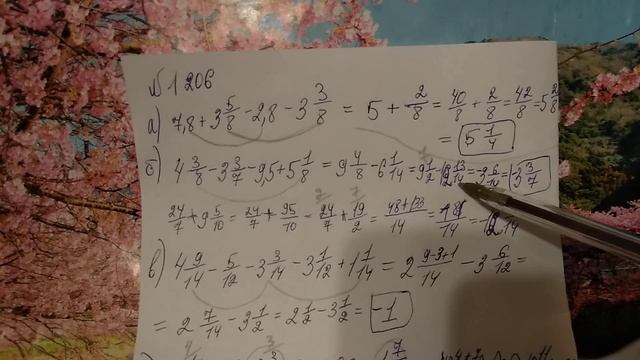 №1206
а) 7,8 + 3 5/8 - 2,8 - 3 3/8 = 5 + 2/8 = 40/8 + 2/8 = 42/8 = 5 2/8
= 5 1/4
б) 4 3/8 - 3 3/7 - 9,5 + 5 1/8 = 9 4/8 - 6 1/14 = 9 1/2 - 12 13/14 = -3 6/14 = -3 3/7
24/7 + 9 5/10 = 24/7 + 95/10 = 24/7 + 19/2 = 48+133/14 = 181/14 = 12 /14
в) 4 9/14 - 5/12 - 3 3/14 - 3 1/12 + 1 1/14 = 2 9-3+1/14 - 3 6/12 =
= 2 7/14 - 3 1/2 = 2 1/2 - 3 1/2 = -1